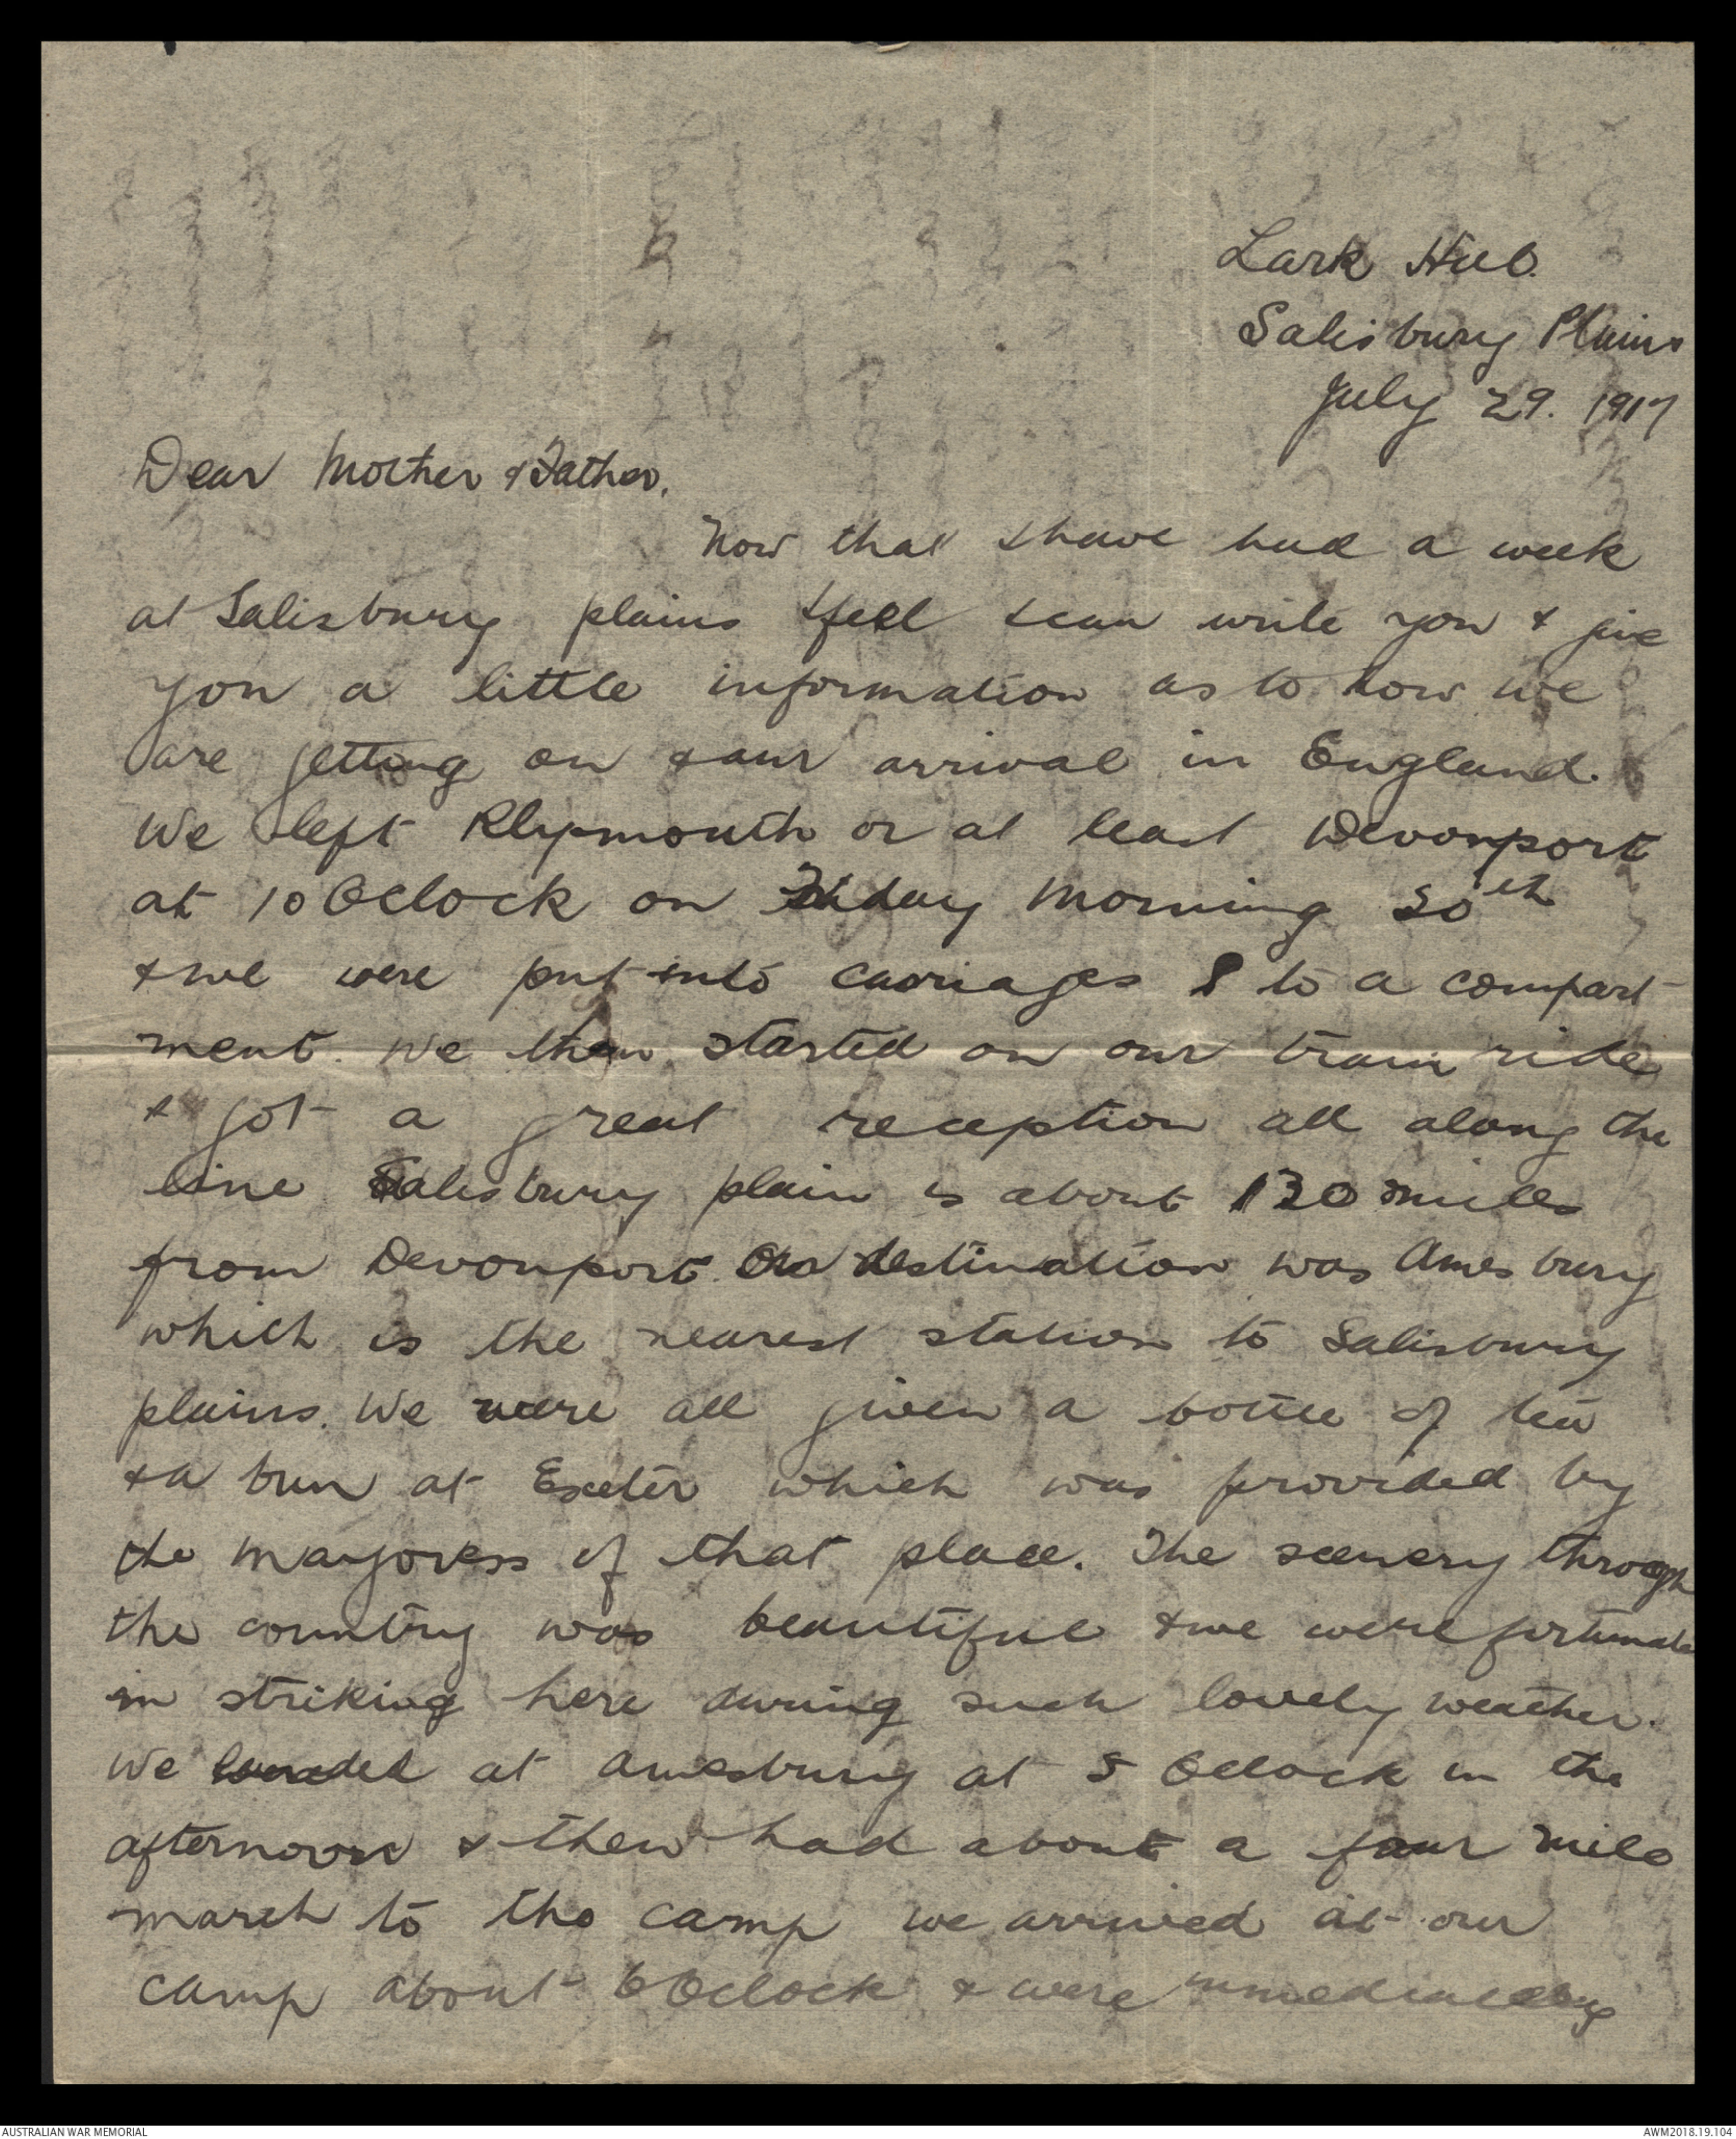 Lark Hill.
Salisbury Plains
July 29. 1917
Dear Mother & Father.
Now that I have had a week
at Salisbury plains I feel I can write you & give
you a little information as to how we
are getting on & our arrival in England.
We left Plymouth or at least Devonport
at 10 Oclock on Friday morning 20th
& we were put into carriages 8 to a compart-
ment. We then started on our train ride
& got a great reception all along the
line Salisbury plain is about 130 miles
from Devonport. Our destination was Amesbury
which is the nearest station to Salisbury
plains. We were all given a bottle of tea
& a bun at Exeter which was provided by
the mayoress of that place. The scenery throogh
the country was beautiful & we were fortunate
in striking here during such lovely weather.
We landed at Amesbury at 5 Oclock in the
afternoon & then had about a four mile
march to the camp we arrived at our
camp about 6 Oclock & were immediately
AUSTRALIAN WAR MEMORIAL
AWM2018.19.104